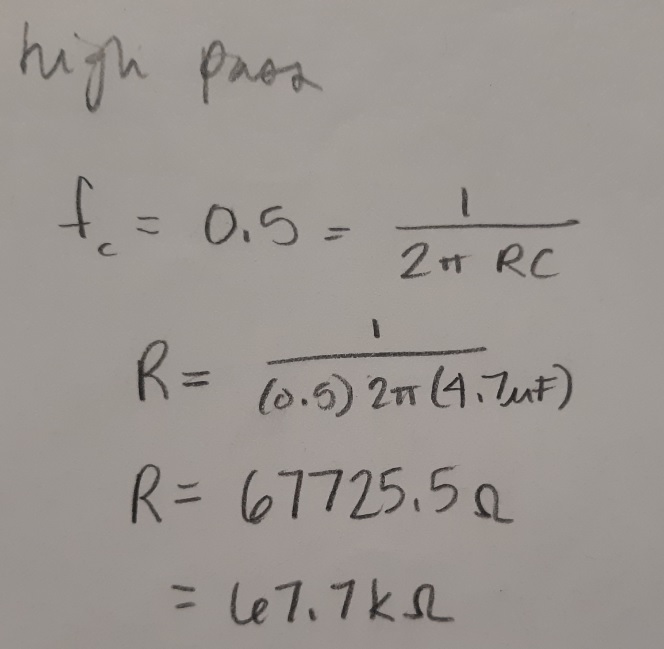 high pass
f_c = 0.5 = 1 / (2π RC)
R = 1 / ((0.5) 2π (4.7uF))
R = 67725.5 Ω
= 67.7 kΩ